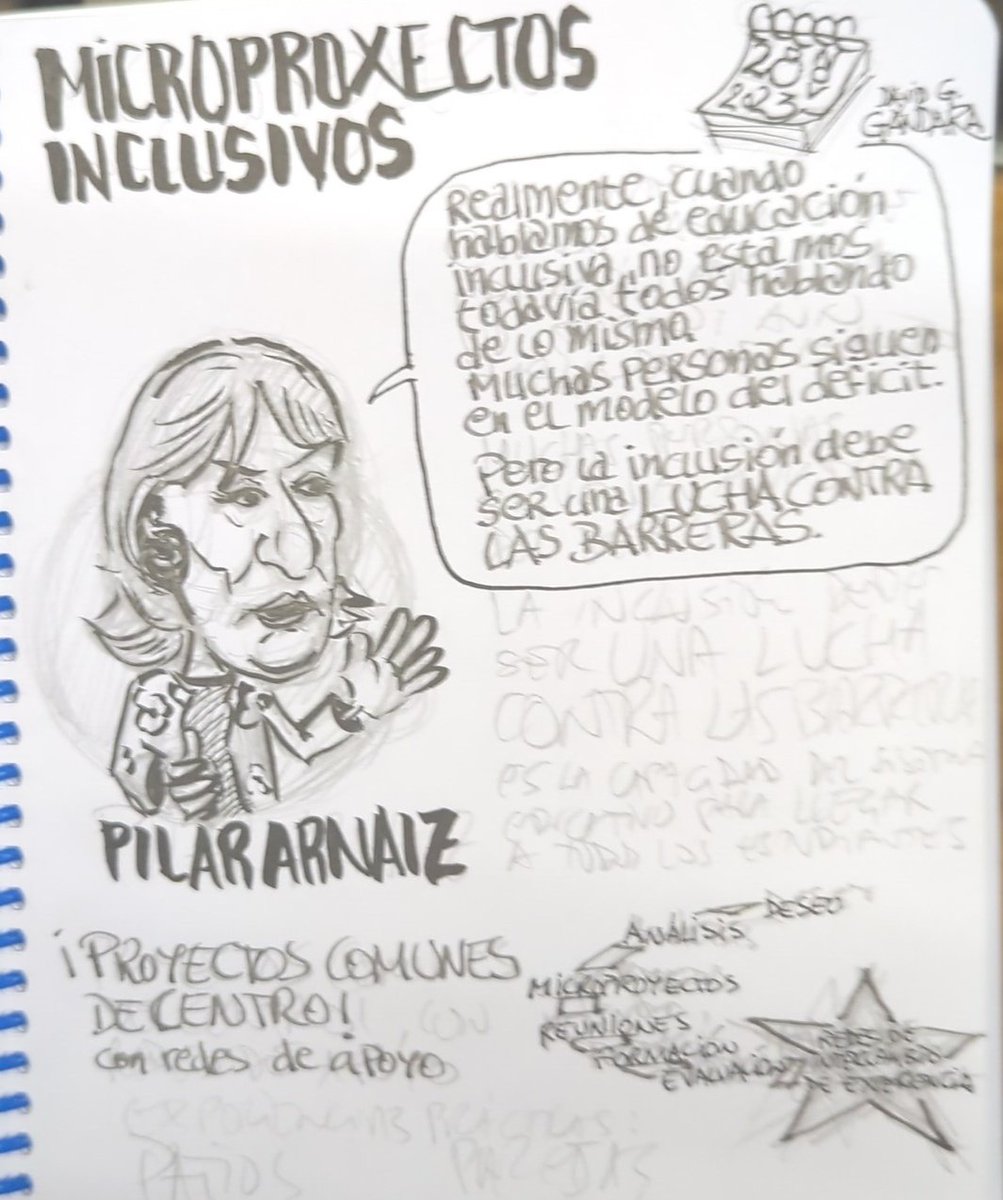 MICROPROXECTOS
INCLUSIVOS
2023
DAVID G.
GÁNDARA
Realmente, cuando
hablamos de educación
inclusiva, no estamos
todavía todos hablando
de lo misma
Muchas personas siguen
en el modelo del déficit.
Pero la inclusión debe
ser una LUCHA CONTRA
LAS BARRERAS.
LA INCLUSIÓN DEBE
SER UNA LUCHA
CONTRA LAS BARRERAS
ES LA CAPACIDAD DEL SISTEMA
EDUCATIVO PARA LLEGAR
A TODOS LOS ESTUDIANTES
PILAR ARNAIZ
¡PROYECTOS COMUNES
DE CENTRO!
con redes de apoyo
DESEO
ANÁLISIS
MICROPROYECTOS
REUNIONES
FORMACIÓN
EVALUACIÓN
REDES DE
INTERCAMBIO
DE EXPERIENCIA
PATIOS